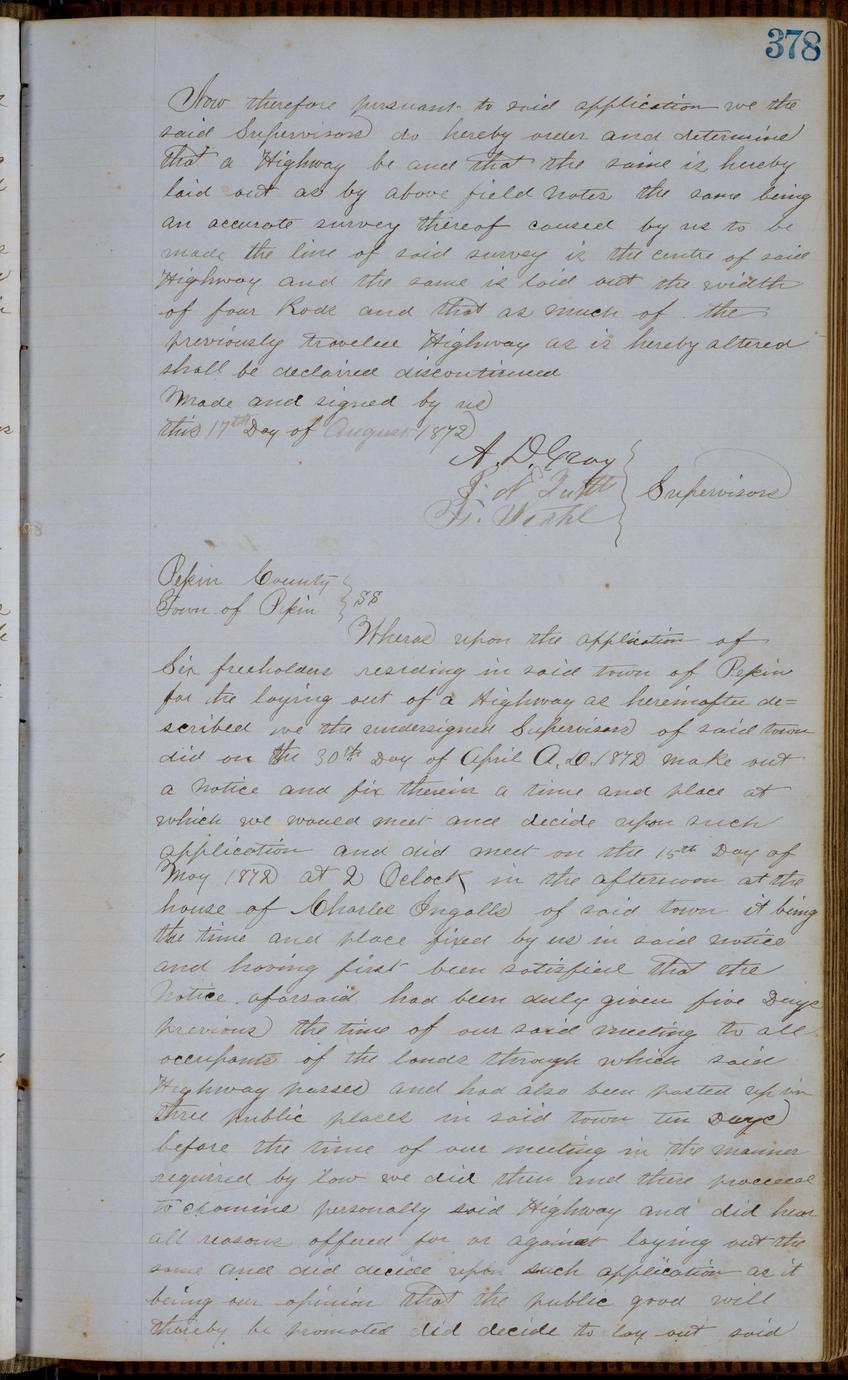 378
Now therefore pursuant to said application we the
said Supervisors do hereby order and determine
that a Highway be and that the same is hereby
laid out as by above field notes the same being
an accurate survey thereof caused by us to be
made the line of said survey is the centre of said
Highway and the same is laid out the width
of four Rods and that as much of the
previously travelled Highway as is hereby altered
shall be declaired discontinued
Made and signed by us
this 17th Day of August 1872
A. D. Gray
Supervisors
Pepin County
Town of Pepin } SS
Wheras upon the application of
Six freeholders residing in said town of Pepin
for the laying out of a Highway as hereinafter de=
scribed we the undersigned Supervisors of said town
did on the 30th Day of April A.D. 1872 make out
a Notice and fix therein a time and place at
which we would meet and decide upon such
application and did meet on the 15th Day of
May 1872 at 2 Oclock in the afternoon at the
house of Charles Ingalls of said town it being
the time and place fixed by us in said notice
and having first been satisfied that the
Notice aforsaid had been duly given five Days
previous the time of our said meeting to all
occupants of the lands through which said
Highway passes and had also been posted up in
three public places in said town ten Days
before the time of our meeting in the manner
required by law we did then and there proceed
to examine personally said Highway and did hear
all reasons offered for or against laying out the
same and did decide upon such application as it
being our opinion that the public good will
thereby be promoted did decide to lay out said